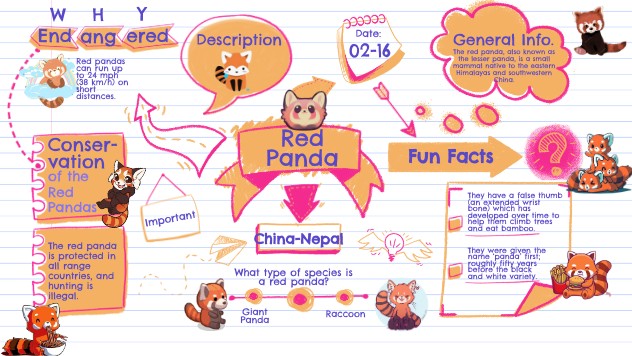 W H Y
End ang ered
Red pandas
can run up
to 24 mph
(38 km/h) on
short
distances.
Description
Date:
02-16
General Info.
The red panda, also known as
the lesser panda, is a small
mammal native to the eastern
Himalayas and southwestern
China.
Conser-
vation
of the
Red
Pandas
The red panda
is protected in
all range
countries, and
hunting is
illegal.
Important
Red
Panda
China-Nepal
What type of species is
a red panda?
Giant
Panda
Raccoon
Fun Facts
?
They have a false thumb
(an extended wrist
bone) which has
developed over time to
help them climb trees
and eat bamboo.
They were given the
name 'panda' first;
roughly fifty years
before the black
and white variety.